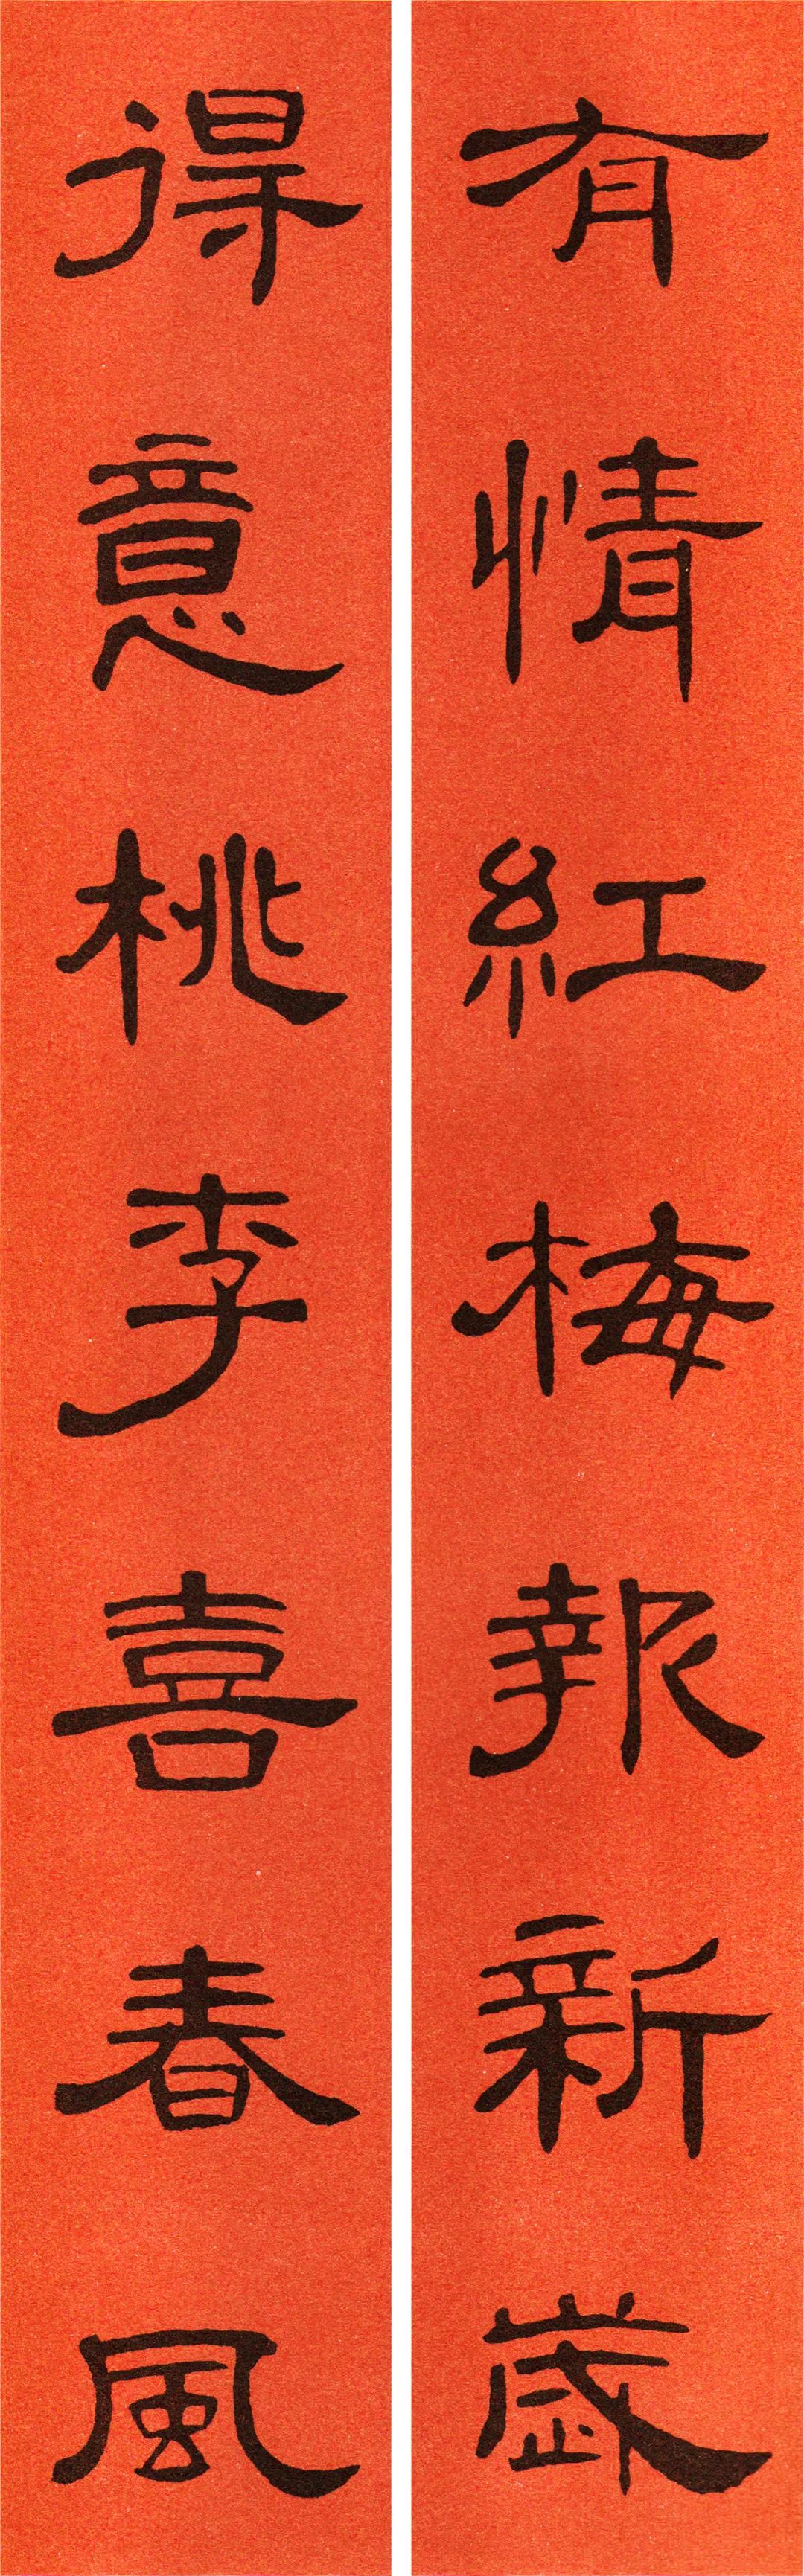 有情紅梅報新歲
得意桃李喜春風